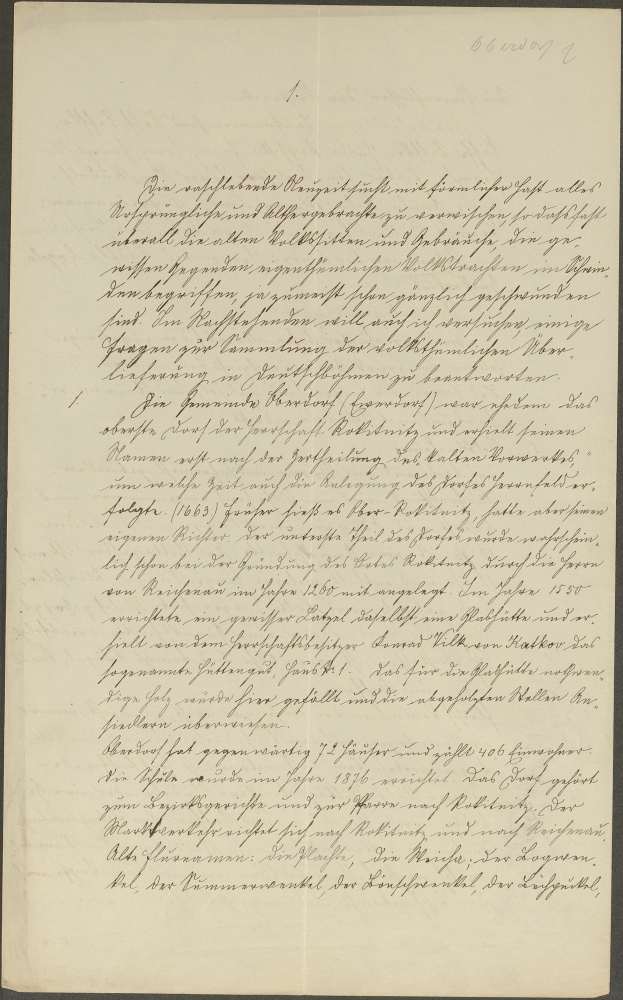 1.
Die raschlebende Neuzeit sucht mit förmlicher Hast alles
Ursprüngliche und Althergebrachte zu verwischen, so dass fast
überall die alten Volkssitten und Gebräuche, die ge-
wissen Gegenden eigenthümlichen Volkstrachten im Schwin-
den begriffen, ja zumeist schon gänzlich geschwunden
sind. Im Nachstehenden will auch ich versuchen, einige
Fragen zur Sammlung der volksthümlichen Über-
lieferung in Deutschböhmen zu beantworten.
1 Die Gemeinde Oberdorf (Ewerdorf) war ehedem das
oberste Dorf der Herrschaft Rokitnitz und erhielt seinen
Namen erst nach der Zertheilung des "kalten Vorwerkes,"
um welche Zeit auch die Anlegung des Dorfes Herrnfeld er-
folgte. (1663) Früher hieß es Ober-Rokitnitz, hatte aber seinen
eigenen Richter. Der unterste Theil des Dorfes wurde wahrschein-
lich schon bei der Gründung des Ortes Rokitnitz durch die Herrn
von Reichenau im Jahre 1260 mit angelegt. Im Jahre 1550
errichtete ein gewisser Latzel daselbst eine Glashütte und er-
hielt von dem Herrschaftsbesitzer Konrad Vilk von Katkov das
sogenannte Hüttengut, Haus N. 1. Das für die Glashütte nothwen-
dige Holz wurde hier gefällt und die abgeholzten Stellen An-
siedlern überwiesen.
Oberdorf hat gegenwärtig 72 Häuser und zählt 406 Einwohner.
Die Schule wurde im Jahre 1876 errichtet. Das Dorf gehört
zum Bezirksgerichte und zur Pfarre nach Rokitnitz. Der
Marktverkehr richtet sich nach Rokitnitz und nach Reichenau.
Alte Flurnamen: Die Plachte, die Weicha, der
kel, der Summerwenkel, der der